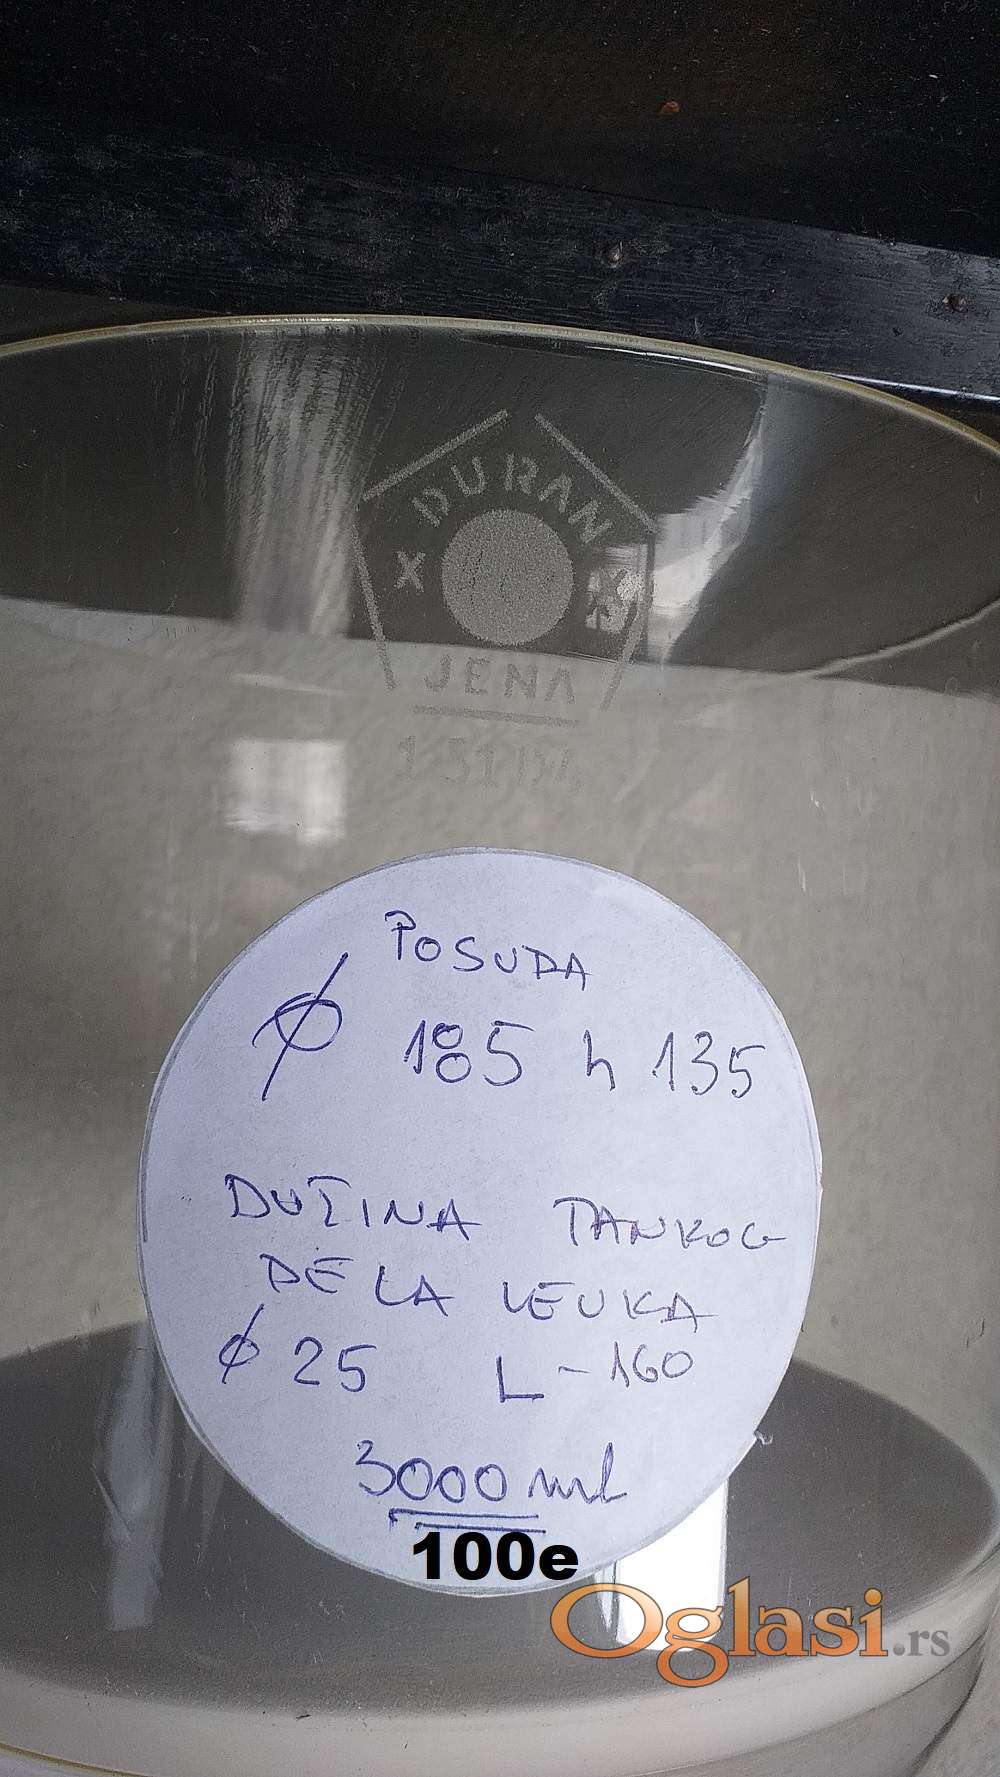 DURAN
JENA
POSUDA
ø 185 h 135
DUŽINA TANKOG
DELA LEVKA
ø 25 L-160
3000 ml
100e
Oglasi.rs